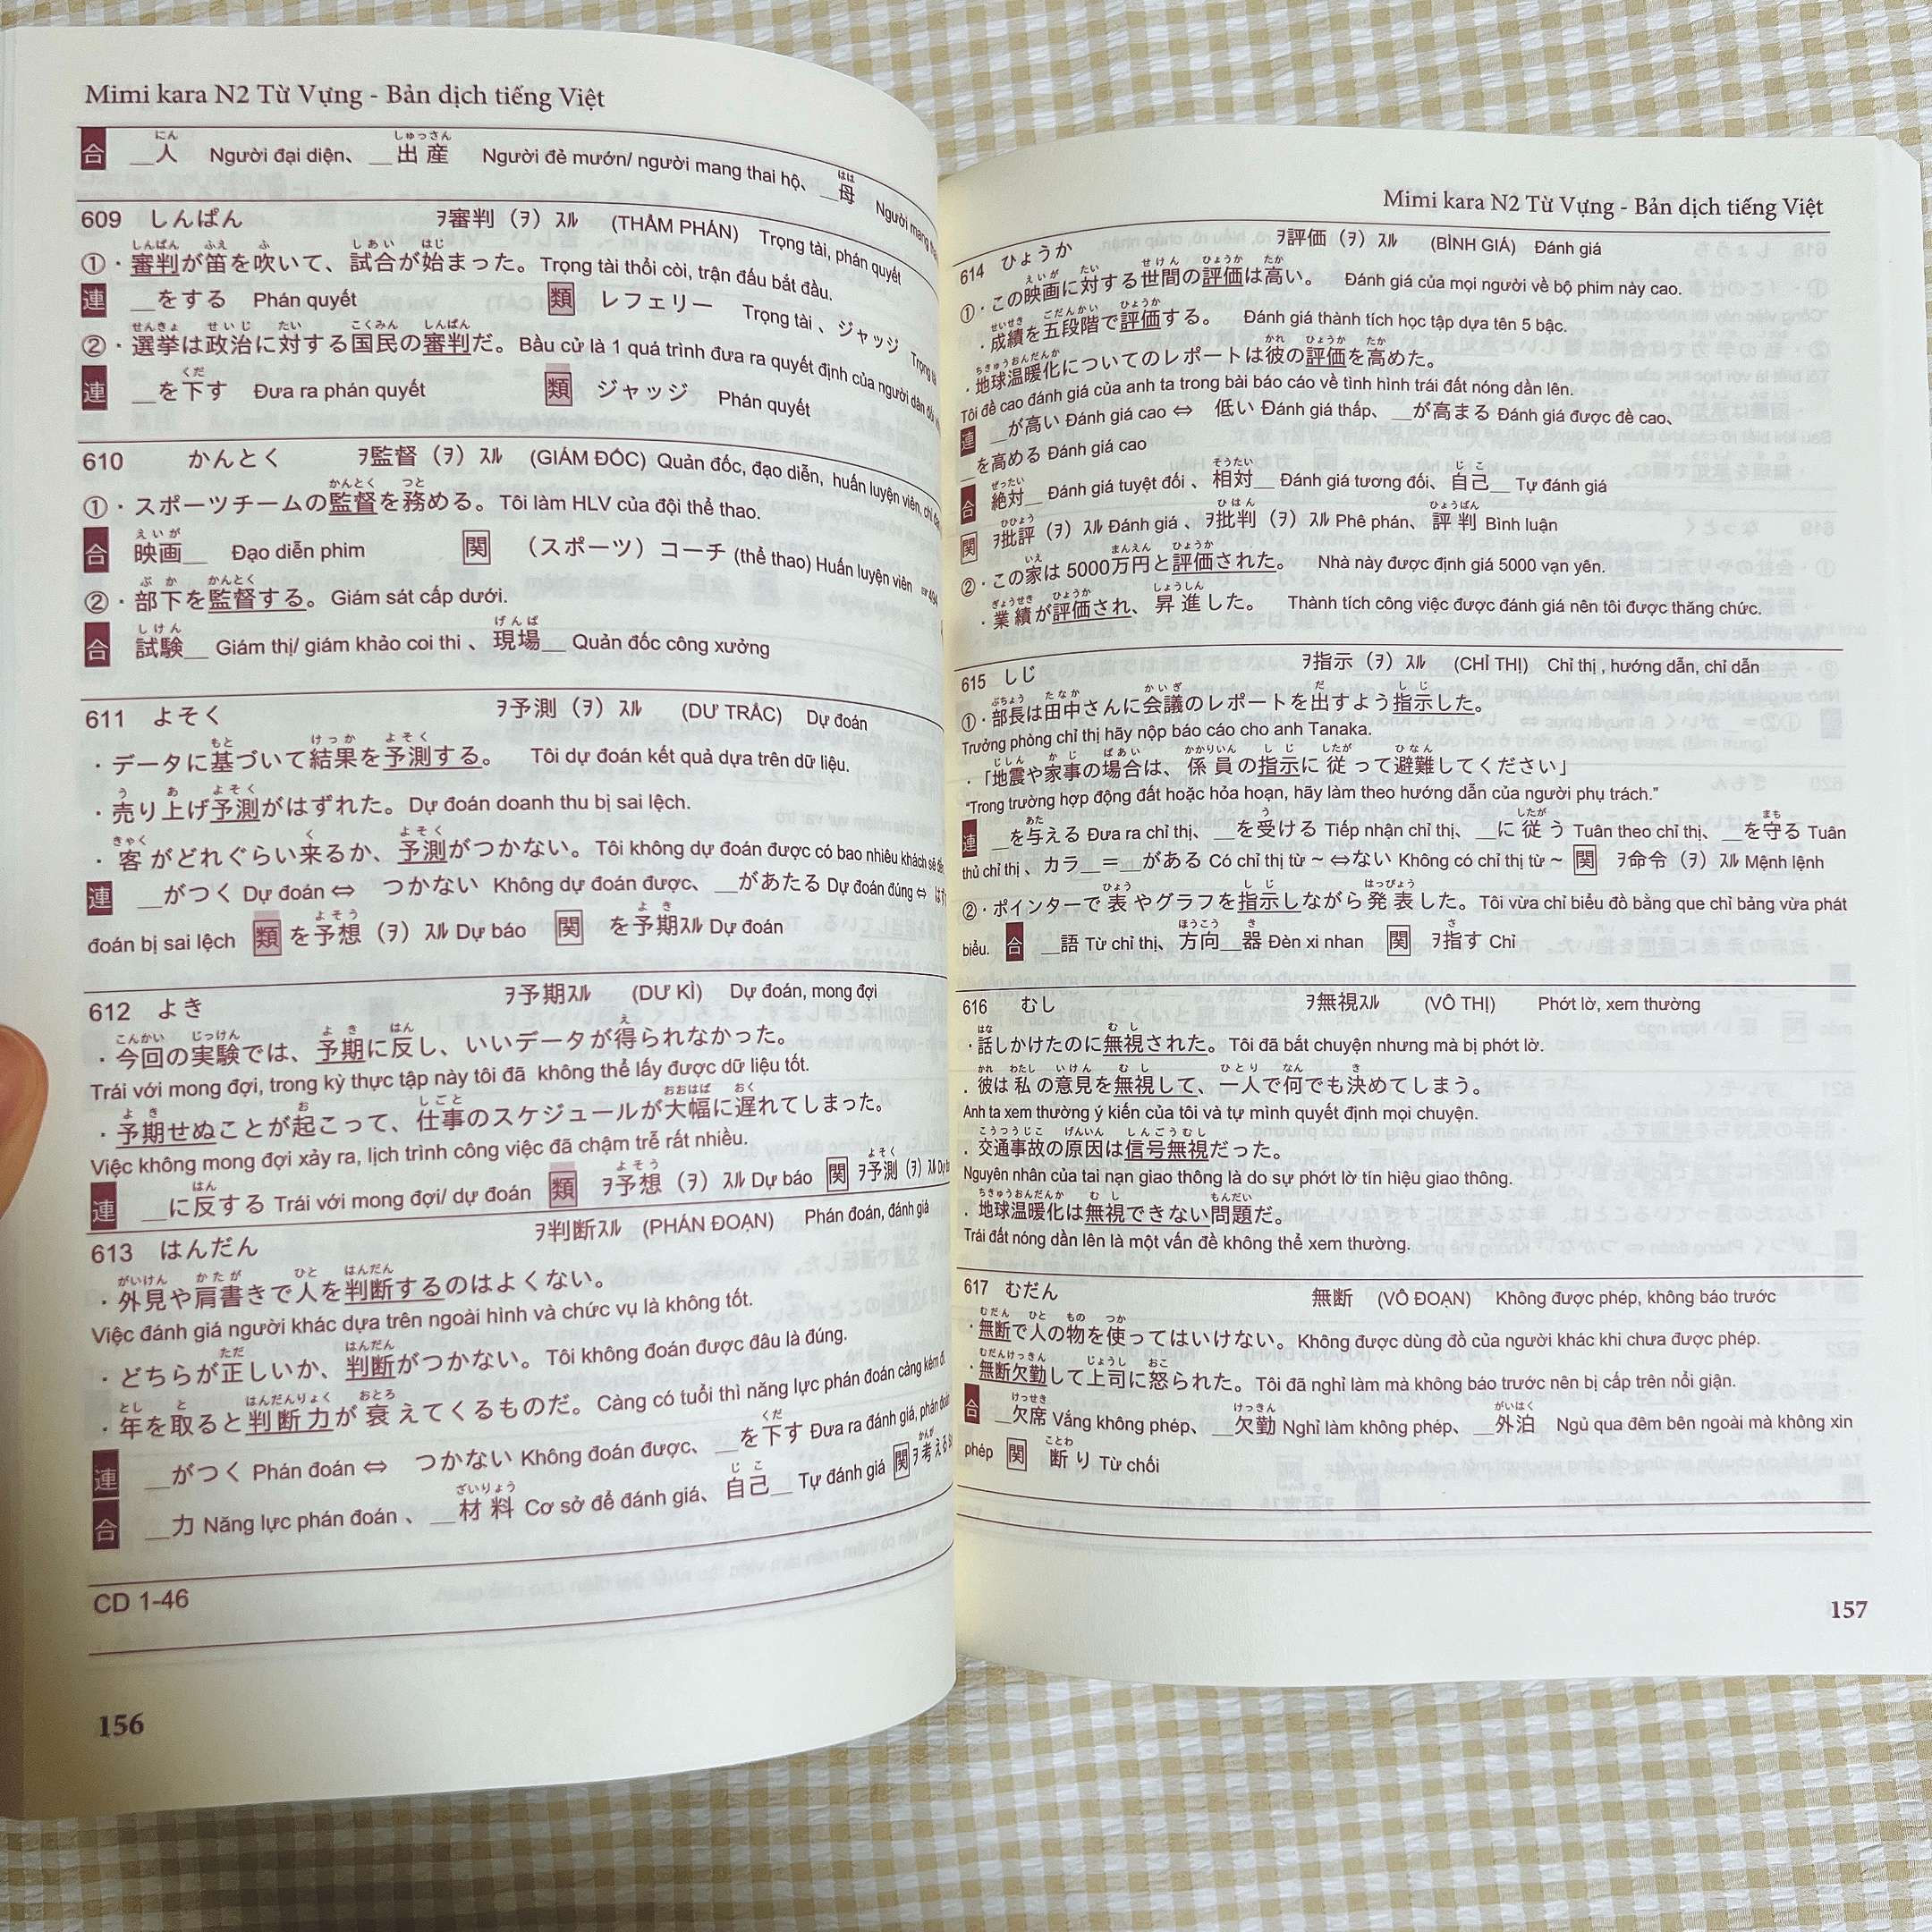 Mimi kara N2 Từ Vựng - Bản dịch tiếng Việt
合 __人 Người đại diện、 __出産 Người đẻ mướn/ người mang thai hộ、 __母 Người mang
609 しんぱん ヲ審判（ヲ）ｽﾙ (THẨM PHÁN) Trọng tài, phán quyết
①・審判が笛を吹いて、試合が始まった。Trọng tài thổi còi, trận đấu bắt đầu.
連 __をする Phán quyết 類 レフェリー Trọng tài 、ジャッジ Trọng tài
②・選挙は政治に対する国民の審判だ。Bầu cử là 1 quá trình đưa ra quyết định của người dân đối
連 __を下す Đưa ra phán quyết 類 ジャッジ Phán quyết
610 かんとく ヲ監督（ヲ）ｽﾙ (GIÁM ĐỐC) Quản đốc, đạo diễn, huấn luyện viên,
①・スポーツチームの監督を務める。Tôi làm HLV của đội thể thao.
合 映画__ Đạo diễn phim 関 （スポーツ）コーチ (thể thao) Huấn luyện viên
②・部下を監督する。Giám sát cấp dưới.
合 試験__ Giám thị/ giám khảo coi thi 、現場__ Quản đốc công xưởng
611 よそく ヲ予測（ヲ）ｽﾙ (DỰ TRẮC) Dự đoán
・データに基づいて結果を予測する。 Tôi dự đoán kết quả dựa trên dữ liệu.
・売り上げ予測がはずれた。Dự đoán doanh thu bị sai lệch.
・客がどれぐらい来るか、予測がつかない。Tôi không dự đoán được có bao nhiêu khách sẽ
連 __がつく Dự đoán ⇔ つかない Không dự đoán được、 __があたる Dự đoán đúng ⇔
đoán bị sai lệch 類 を予想（ヲ）ｽﾙ Dự báo 関 を予期ｽﾙ Dự đoán
612 よき ヲ予期ｽﾙ (DỰ KÌ) Dự đoán, mong đợi
・今回の実験では、予期に反し、いいデータが得られなかった。
Trái với mong đợi, trong kỳ thực tập này tôi đã không thể lấy được dữ liệu tốt.
・予期せぬことが起こって、仕事のスケジュールが大幅に遅れてしまった。
Việc không mong đợi xảy ra, lịch trình công việc đã chậm trễ rất nhiều.
連 __に反する Trái với mong đợi/ dự đoán 類 ヲ予想（ヲ）ｽﾙ Dự báo 関 ヲ予測（ヲ）ｽﾙ
613 はんだん ヲ判断ｽﾙ (PHÁN ĐOẠN) Phán đoán, đánh giá
・外見や肩書きで人を判断するのはよくない。
Việc đánh giá người khác dựa trên ngoài hình và chức vụ là không tốt.
・どちらが正しいか、判断がつかない。Tôi không đoán được đâu là đúng.
・年を取ると判断力が衰えてくるものだ。Càng có tuổi thì năng lực phán đoán càng kém đi.
連 __がつく Phán đoán ⇔ つかない Không đoán được、 __を下す Đưa ra đánh giá, phán đoán
合 __力 Năng lực phán đoán 、 __材料 Cơ sở để đánh giá、 自己__ Tự đánh giá 関 ヲ考える
CD 1-46
156
Mimi kara N2 Từ Vựng - Bản dịch tiếng Việt
614 ひょうか ヲ評価（ヲ）ｽﾙ (BÌNH GIÁ) Đánh giá
①・この映画に対する世間の評価は高い。 Đánh giá của mọi người về bộ phim này cao.
・成績を五段階で評価する。 Đánh giá thành tích học tập dựa tên 5 bậc.
・地球温暖化についてのレポートは彼の評価を高めた。
Tôi đề cao đánh giá của anh ta trong bài báo cáo về tình hình trái đất nóng dần lên.
連 __が高い Đánh giá cao ⇔ 低い Đánh giá thấp、 __が高まる Đánh giá được đề cao、
__を高める Đánh giá cao
合 絶対__ Đánh giá tuyệt đối 、相対__ Đánh giá tương đối、自己__ Tự đánh giá
関 ヲ批評（ヲ）ｽﾙ Đánh giá 、ヲ批判（ヲ）ｽﾙ Phê phán、評判 Bình luận
②・この家は 5000万円と評価された。 Nhà này được định giá 5000 vạn yên.
・業績が評価され、昇進した。 Thành tích công việc được đánh giá nên tôi được thăng chức.
615 しじ ヲ指示（ヲ）ｽﾙ (CHỈ THỊ) Chỉ thị , hướng dẫn, chỉ dẫn
①・部長は田中さんに会議のレポートを出すよう指示した。
Trưởng phòng chỉ thị hãy nộp báo cáo cho anh Tanaka.
・「地震や家事の場合は、係員の指示に従って避難してください」
"Trong trường hợp động đất hoặc hỏa hoạn, hãy làm theo hướng dẫn của người phụ trách."
連 __を与える Đưa ra chỉ thị、 __を受ける Tiếp nhận chỉ thị、 __に従う Tuân theo chỉ thị、 __を守る Tuân
thủ chỉ thị 、カラ__＝__がある Có chỉ thị từ ~ ⇔ない Không có chỉ thị từ ~ 関 ヲ命令（ヲ）ｽﾙ Mệnh lệnh
②・ポインターで表やグラフを指示しながら発表した。Tôi vừa chỉ biểu đồ bằng que chỉ bảng vừa phát
biểu. 合 __語 Từ chỉ thị、方向__器 Đèn xi nhan 関 ヲ指す Chỉ
616 むし ヲ無視ｽﾙ (VÔ THỊ) Phớt lờ, xem thường
・話しかけたのに無視された。Tôi đã bắt chuyện nhưng mà bị phớt lờ.
・彼は私の意見を無視して、一人で何でも決めてしまう。
Anh ta xem thường ý kiến của tôi và tự mình quyết định mọi chuyện.
・交通事故の原因は信号無視だった。
Nguyên nhân của tai nạn giao thông là do sự phớt lờ tín hiệu giao thông.
・地球温暖化は無視できない問題だ。
Trái đất nóng dần lên là một vấn đề không thể xem thường.
617 むだん 無断 (VÔ ĐOẠN) Không được phép, không báo trước
・無断で人の物を使ってはいけない。Không được dùng đồ của người khác khi chưa được phép.
・無断欠勤して上司に怒られた。Tôi đã nghỉ làm mà không báo trước nên bị cấp trên nổi giận.
合 __欠席 Vắng không phép、 __欠勤 Nghỉ làm không phép、 __外泊 Ngủ qua đêm bên ngoài mà không xin
phép 関 断り Từ chối
157